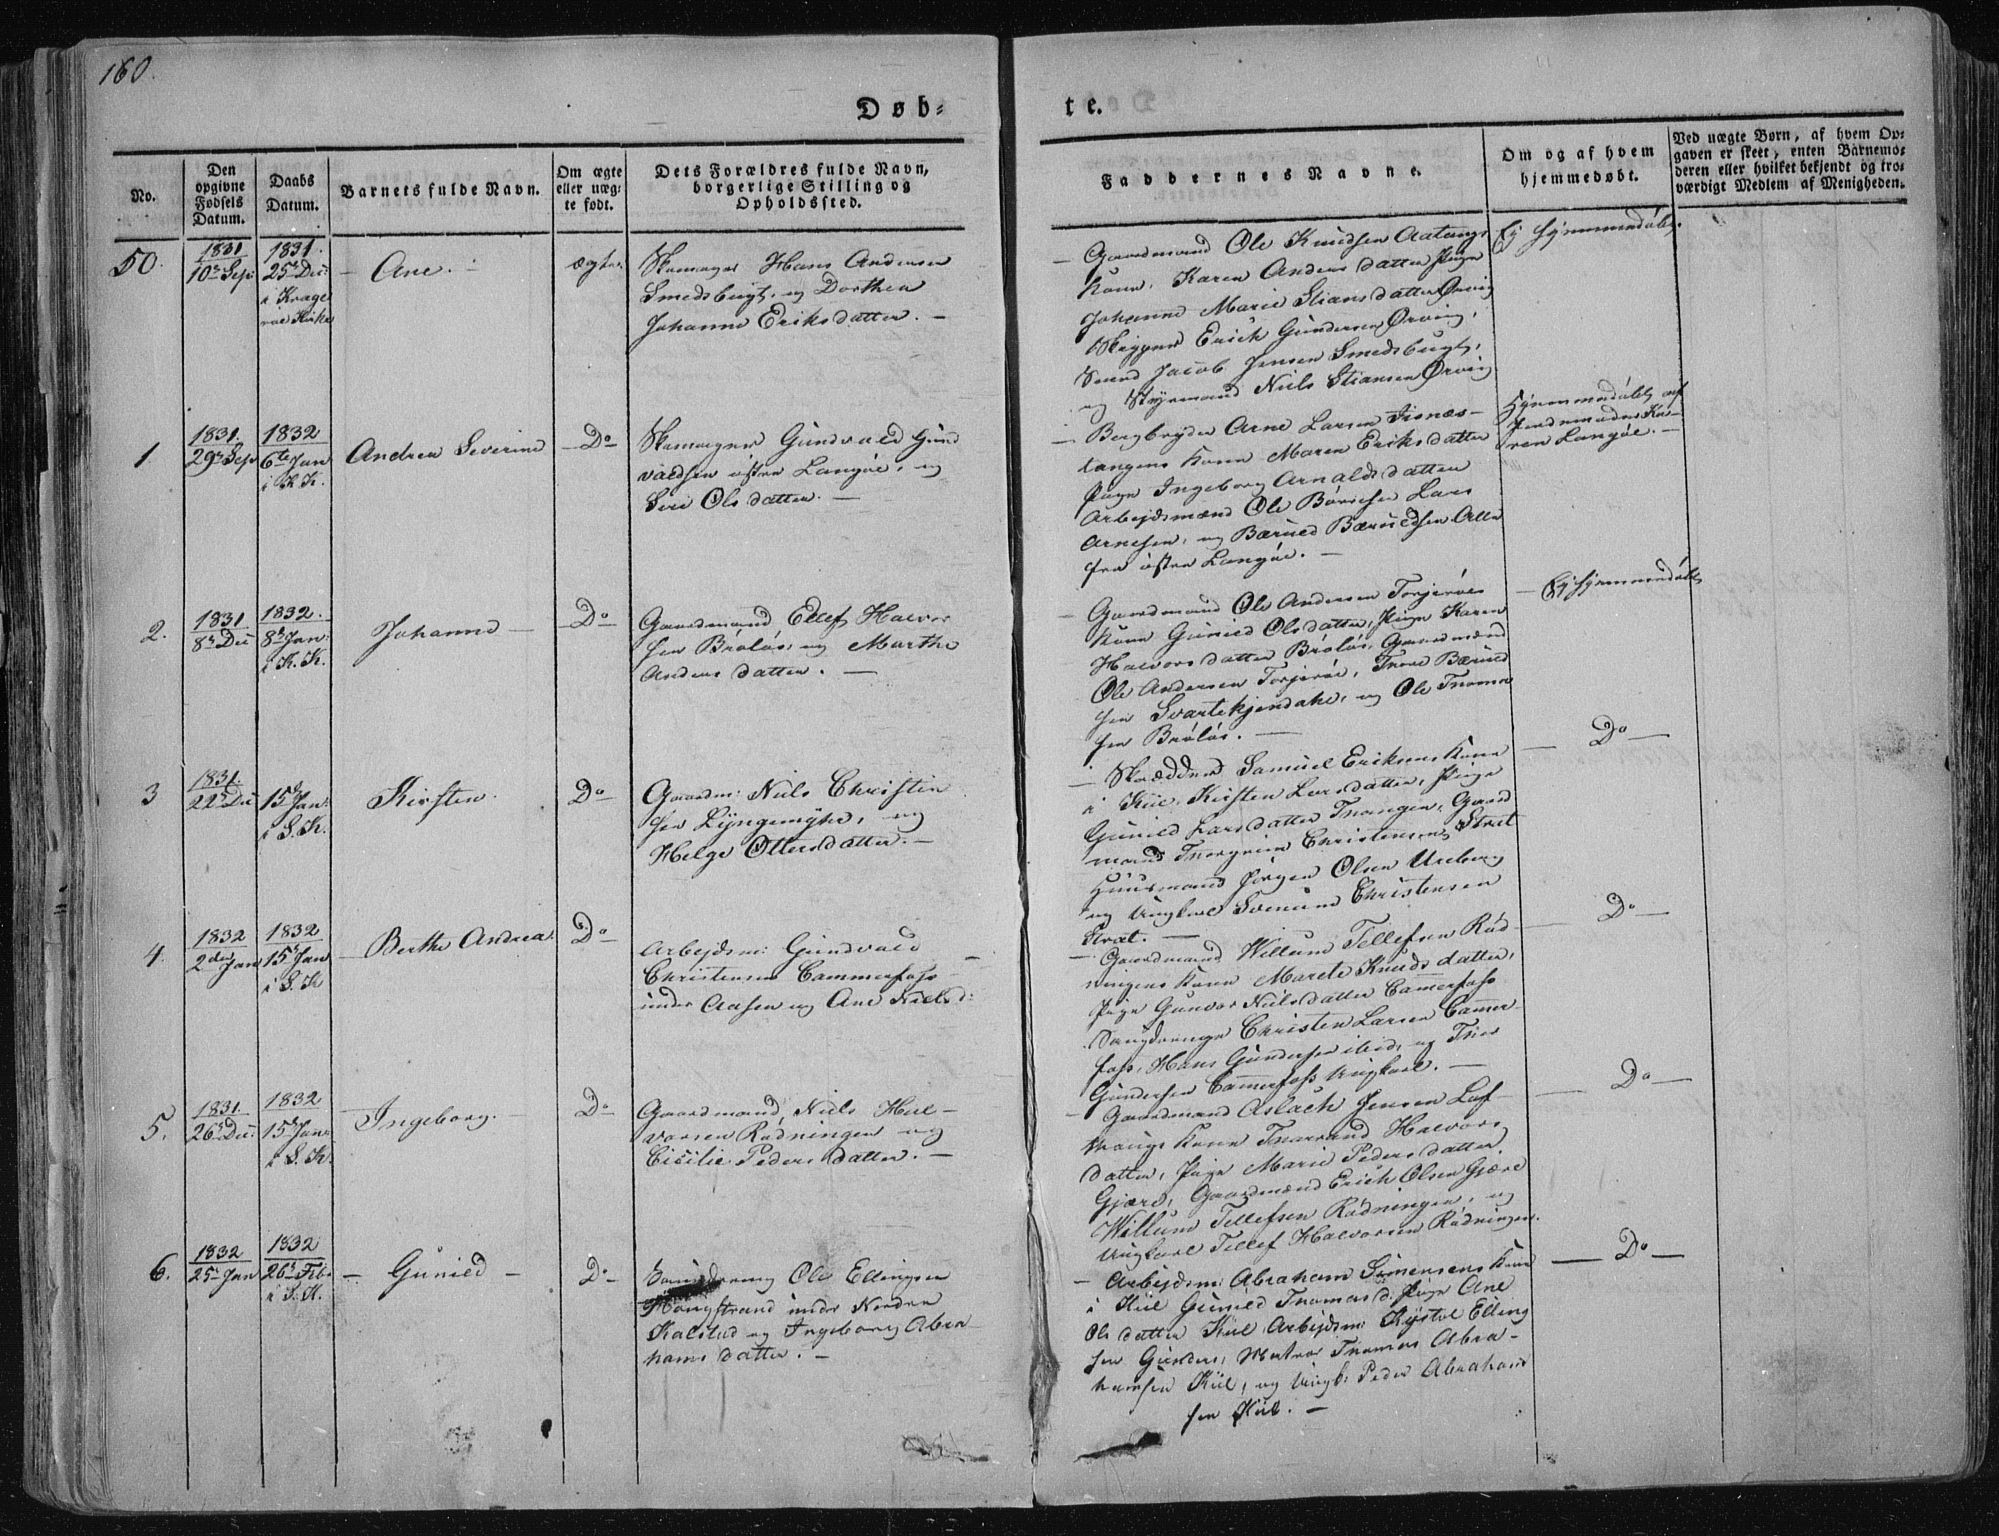 160.
Døb-
te.
No.
Den opgivne Fødsels Datum.
Daabs Datum.
Barnets fulde Navn.
Om ægte eller uægte født.
Dets Forældres fulde Navn, borgerlige Stilling og Opholdssted.
Faddernes Navne.
Om og af hvem hjemmedøbt.
Ved uægte Børn, af hvem Opgaven er skeet, enten Barnemoderen eller hvilket bekjendt og troværdigt Medlem af Menigheden.
50.
1831
10de Sep:
1831.
25de De:
i Krage
röe Kirke
Ane.
ægte.
Skomager Hans Andersen
Smedsbugt, og Dorthea
Johanne Eriksdatter. —
Gaardmand Ole Knudsen Aatangs
Kone, Karen Andersdatter, Pige
Johanne Marie Stiansdatter Ørvig
Skipper Erich Gundersen Ørvig,
Svend Jacob Jensen Smedsbugt,
og Styrmand Niels Stiansen Ørvig
Ej hjemmedöbt.
1.
1831.
29de Sep
1832
6te Jan
i K. K.
Andrea Severine
Do
Skomager Gundvald Gund
valdsen östre Langöe, og
Siri Olsdatter. —
Bergbryder Arne Larsen
tangens Kone Maren Eriksdatter
Pige Ingeborg Arnaldsdatter
Arbejdsmænd Ole Lars
Arnesen, og
fra östre Langöe. —
Hjemmedöbt af
Jordemoder Ka-
ren Langöe. —
2.
1831
8de De
1832.
8de Jan:
i K. K.
Johanne
Do
Gaardmand Ellef Halvor
sen Bröløs, og Marthe
Andersdatter. —
Gaardmand Ole Andersen Torjeröes
Kone Gunild Olsdatter, Pige Karen
Halvorsdatter Bröløs, Gaardmænd
Ole Andersen Torjeröe,
sen og Ole Thomas
sen Bröløs. —
Ej hjemmedöbt
3
1831.
22de De
15de Jan:
i S. K.
Kirsten.
Do
Gaardm: Niels Christen
sen Lyngemyhr, og
Helge Ottersdatter. —
Skrædder Samuel Eriksens Kone
i Kiil, Kirsten Larsdatter, Pige
Gunild Larsdatter Gaard
mand Thorgrim Christensen Strat
Huusmand Jörgen Olsen
og Ungkarl Christensen
Strat. —
Do —
4.
1832
2den Jan
1832
15de Jan
i S. K
Berthe Andrea
Do
Arbejdsm: Gundvald
Christensen Cammerfoss
under Aasen og Ane Nielsd:
Gaardmand Willum Tellefsen Röd-
ningens Kone Marete Knudsdatter,
Pige Gunvor Nielsdatter Camerfoss
Christen Larsen Camer-
foss, Hans Gundersen ibid, og
Gundersen Camerfoss Ungkarl. —
Do —
5.
1831.
26de De:
1832
15de Jan:
i S. K.
Ingeborg.
Do
Gaardmand, Niels Hal-
vorsen Rödningen og
Cicilie Pedersdatter. —
Gaardmand Aslach Jensen Laf-
Kone Halvors
datter, Pige Marie Pedersdatter
Gjære, Gaardmænd Erich Olsen Gjære
Willum Tellefsen Rödningen, og
Ungkarl Tellef Halvorsen Rödningen.
Do —
6.
1832
25de Jan
1832
26de Feb.
i S. K.
Gunild
Do
Ole Ellingsen
under Norden
Kalstad og Ingeborg Abra
hamsdatter. —
Arbejdsm: Abraham Simensens Kone
i Kiil Gunild Thomasd. Pige Ane
Olsdatter Kiil, Arbejdsm: Kystol Elling
sen Matros Thomas Abra-
hamsen Kiil, og Ungk: Peder Abraham
sen Kiil. —
Do —